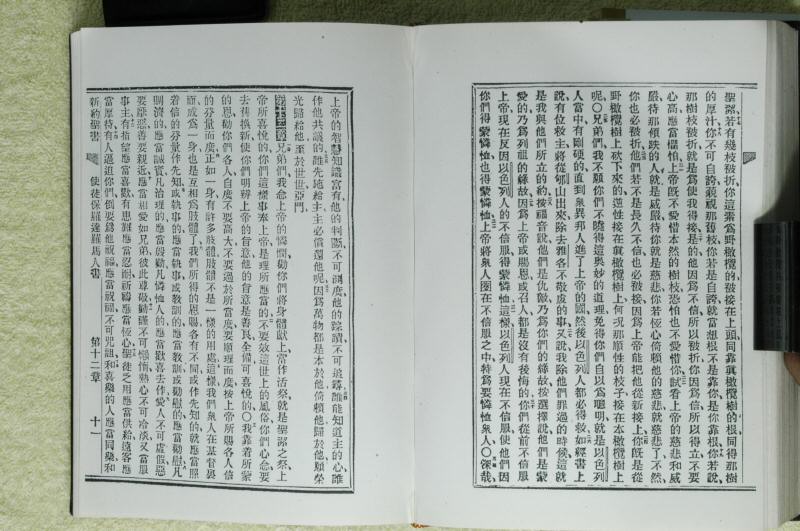 聖潔、若有幾枝被折、你這素爲野橄欖的、被接在上頭、同靠眞橄欖樹的根、同得那樹
的厚汁、你不可自誇藐視那舊枝、你若是自誇、就當想根不是靠你、是你靠根、你若說、
那樹枝被折、就是爲使我得接、是的、他因爲不信、所以被折、你因爲信、所以得立、不要
心高、應當懼怕、上帝旣不愛惜本然的樹枝、恐怕也不愛惜你、試看上帝的慈悲和威
嚴、待那傾跌的人、就是威嚴、待你就是慈悲、你若恆心倚賴他的慈悲、就慈悲了、不然、
你也必被折、他們若不是長久不信、也必被接、因爲上帝能把他從新接上、你旣是從
野橄欖樹上砍下來的、逆性接在眞橄欖樹上、何况那順性的枝子接在本橄欖樹上
呢、○兄弟們、我不願你們不曉得這奧妙的道理、免得你們自以爲聰明、就是以色列
人當中有剛硬的、直到衆異邦人進了上帝的國、然後以色列人都必得救、如經書上
說、有位救主將從郇山出來、除去雅各不敬虔的事、又說、我除他們罪過的時候、這就
是我與他們所立的約、按福音說、他們是仇敵、乃爲你們的緣故、按選擇說、他們是蒙
愛的、乃爲列祖的緣故、因爲上帝或賜恩、或召人、都是沒有後悔的、你們從前不信服
上帝、現在反因以色列人的不信服、得蒙憐恤、這樣以色列人現在不信服、使他們因
你們得蒙憐恤、也得蒙憐恤、上帝將衆人圈在不信服之中、特爲要憐恤衆人、○深哉、
上帝的智慧知識富有、他的判斷不可測度、他的踪蹟不可追尋、誰能知道主的心、誰
作他共議的、誰先施給主、主必償還他呢、因爲萬物都是本於他、倚賴他、歸於他、願榮
光歸給他、至於世世、亞門、
第十二章 兄弟們、我念上帝的憐憫、勸你們將身體獻上、當作活祭、就是聖潔之祭、上
帝所喜悅的、你們這樣事奉上帝、是理所應當的、不要效這世上的風俗、你們心意要
去舊換新、使你們明辨上帝的旨意、他的旨意是善良全備可喜悅的、○我靠着所蒙
的恩、勸你們各人、自度不要高大、不要過於所當度、要順理而度、按上帝所賜各人信
的分量而度、正如一身有許多肢體、肢體不是一樣的用處、這樣我們衆人在基督裏
而成爲一身、也是互相爲肢體了、我們所得的恩賜各有不同、或作先知的、就應當照
着信的分量作先知、或執事的應當執事、或敎訓的應當敎訓、或勸慰的應當勸慰、凡
賙濟的應當誠實、凡治理的應當殷勤、凡憐恤人的應當歡喜去作、愛人不可虛假、惡
要厭惡、善要親近、應當相愛如兄弟、彼此尊敬、勤謹不可懶惰、熱心不可冷淡、又當服
事主、有希望應當喜歡、有患難應當忍耐、祈禱應當恆心、聖徒乏用應當供給、遠客應
當厚待、有人逼迫你們、倒要爲他祝福、應當祝福、不可咒詛、和喜樂的人應當同樂、和
新約聖書　使徒保羅達羅馬人書　第十二章　十一